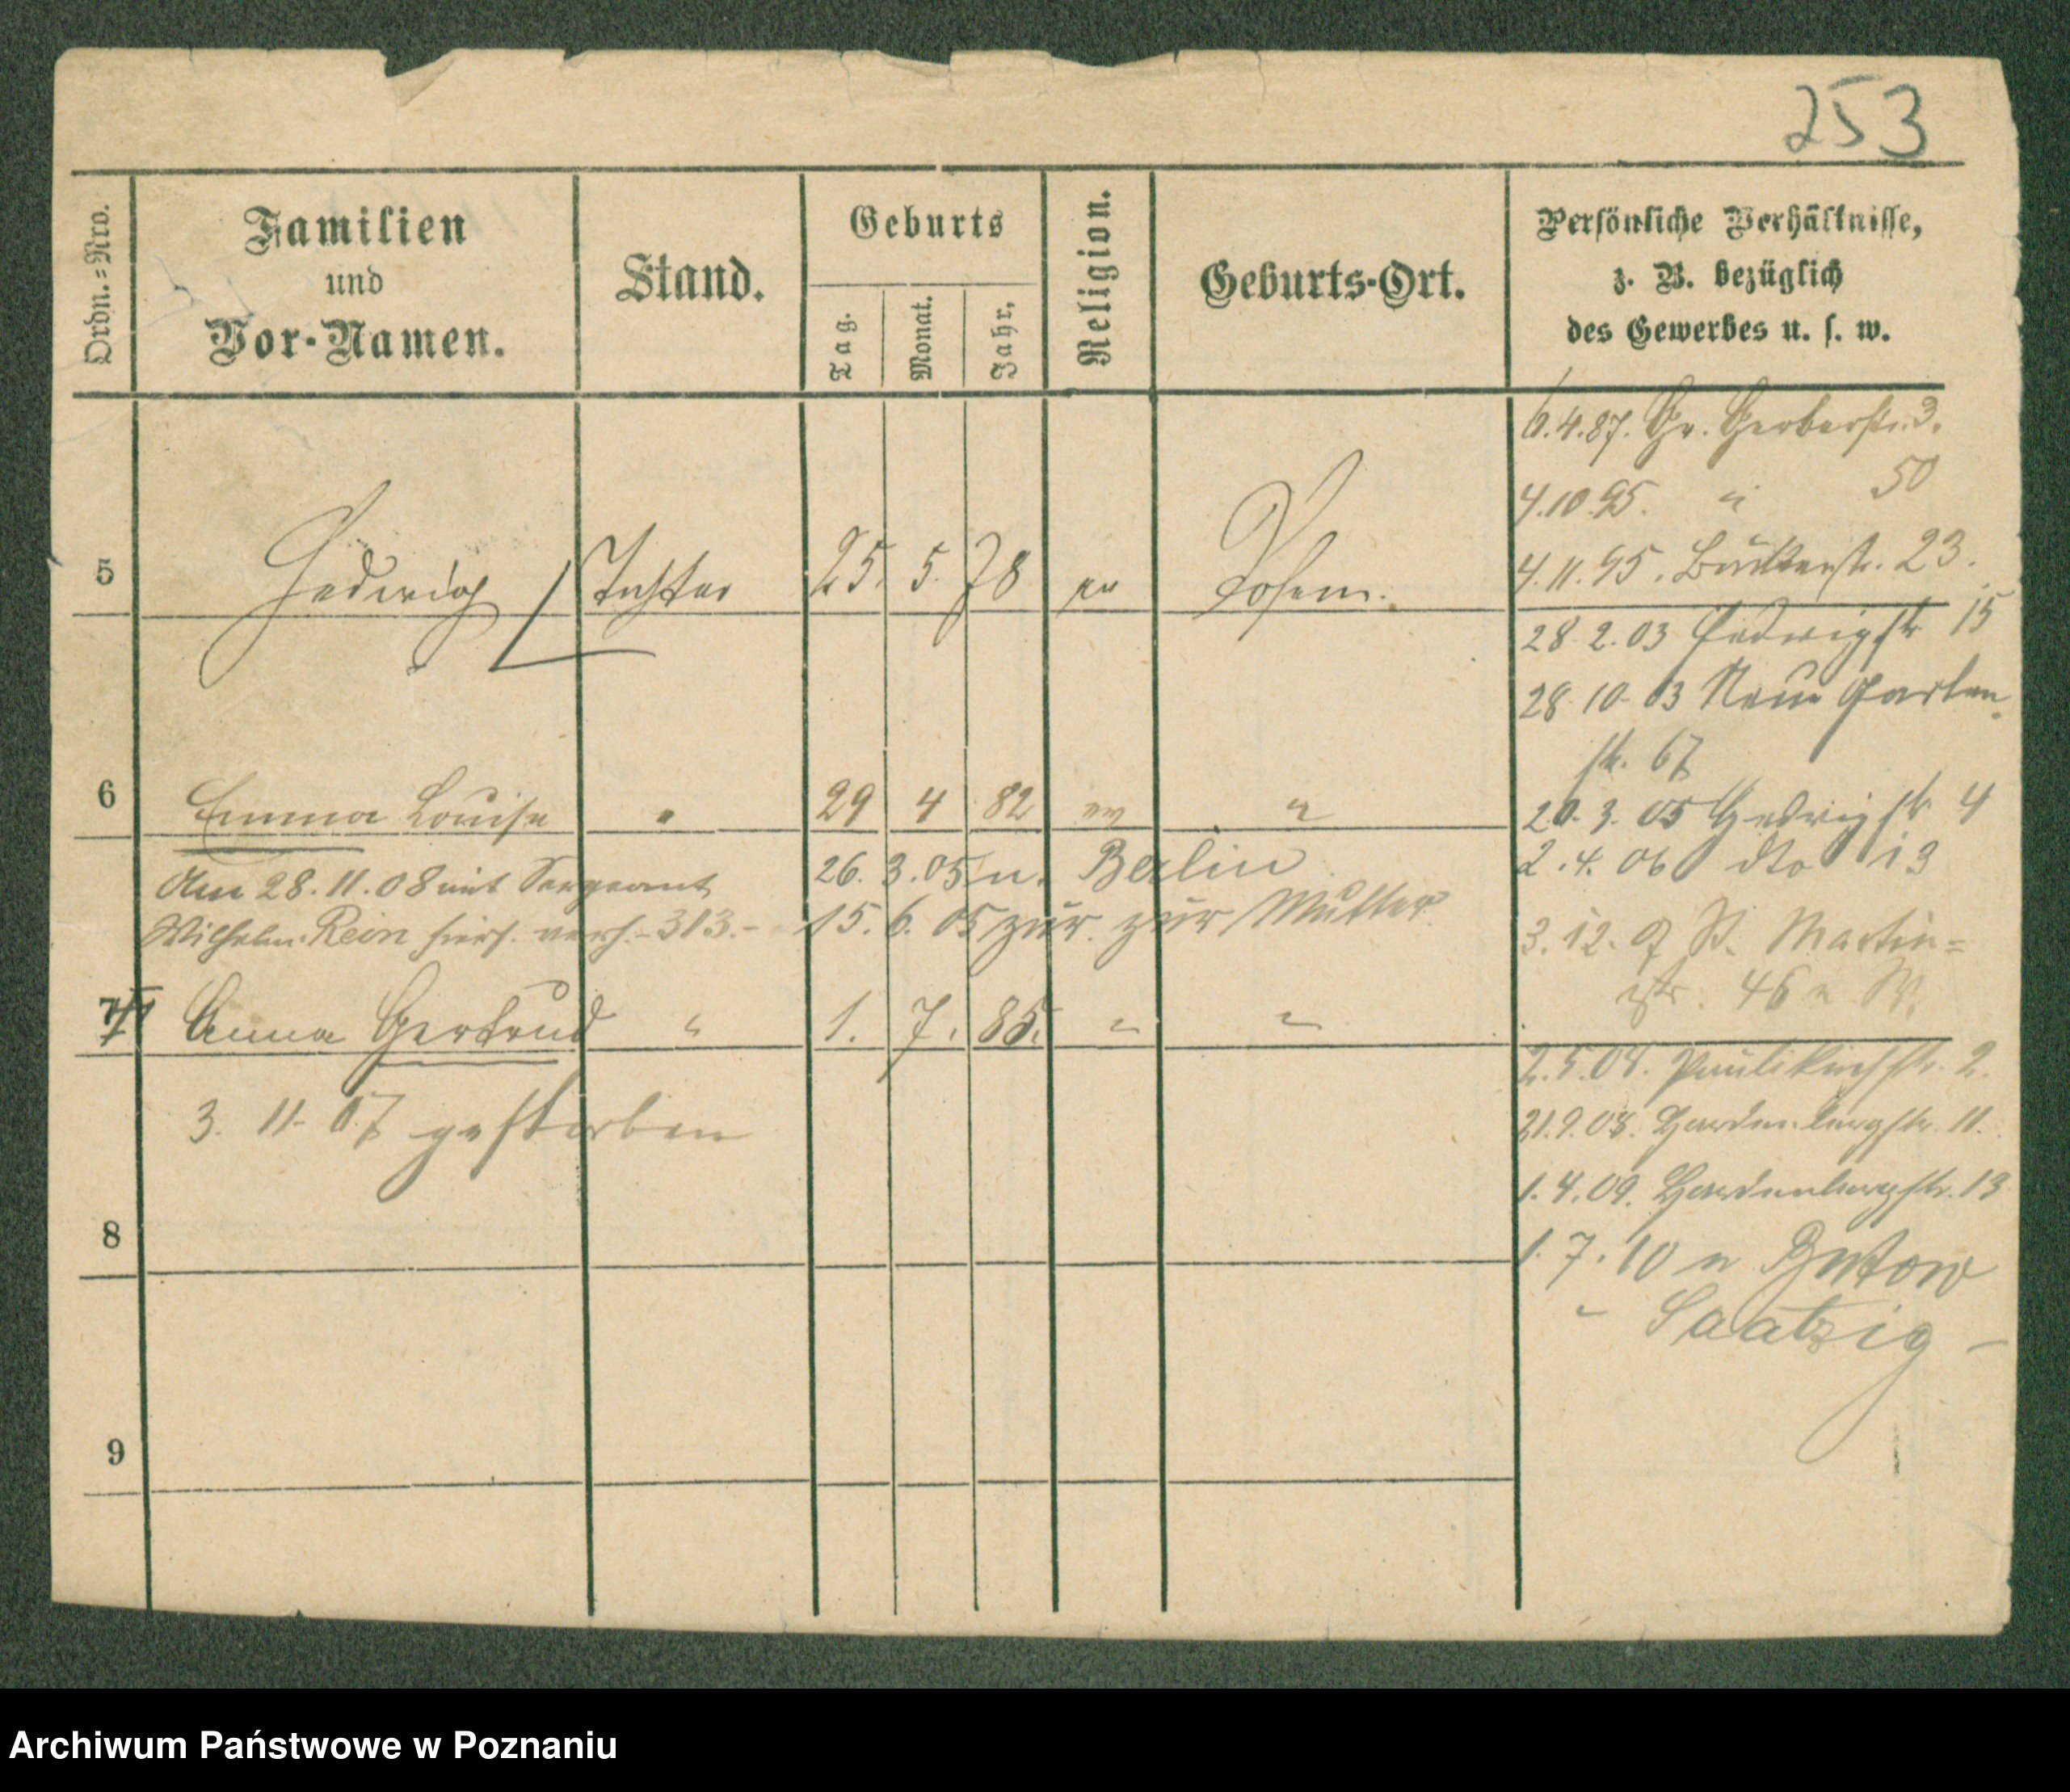 253
Ordn.=Nro.
Familien
und
Vor-Namen.
Stand.
Geburts
Tag.
Monat.
Jahr.
Religion.
Geburts-Ort.
Persönliche Verhältnisse,
z. B. bezüglich
des Gewerbes u. s. w.
6.4.87. Gr. Gerberstr. 3.
4.10.95. " 50
4.11.95. Büttelstr. 23.
5 Hedwig Tochter 25. 5. 78 ev Posen.
28.2.03 Hedwigstr 15
28.10.03 Neue Garten
str. 67
6 Emma Louise " 29 4 82 ev "
20.3.05 Hedwigstr 4
2.4.06 dto 13
Am 28.11.08 mit Sergeant 26.3.05 n. Berlin
Wilhelm Rein hiers. verh. - 313. - 15.6.05 zur. zur Mutter
3.12.07 St. Martin=
str. 46 n. W.
7 Anna Gertrud " 1. 7. 85. " "
2.5.08. Paulikirchstr. 2.
3. 11. 07 gestorben
21.9.08. Hardenbergstr. 11.
1.4.09. Hardenbergstr. 13
8
1.7.10 n Butow
- Saatzig -
9
Archiwum Państwowe w Poznaniu